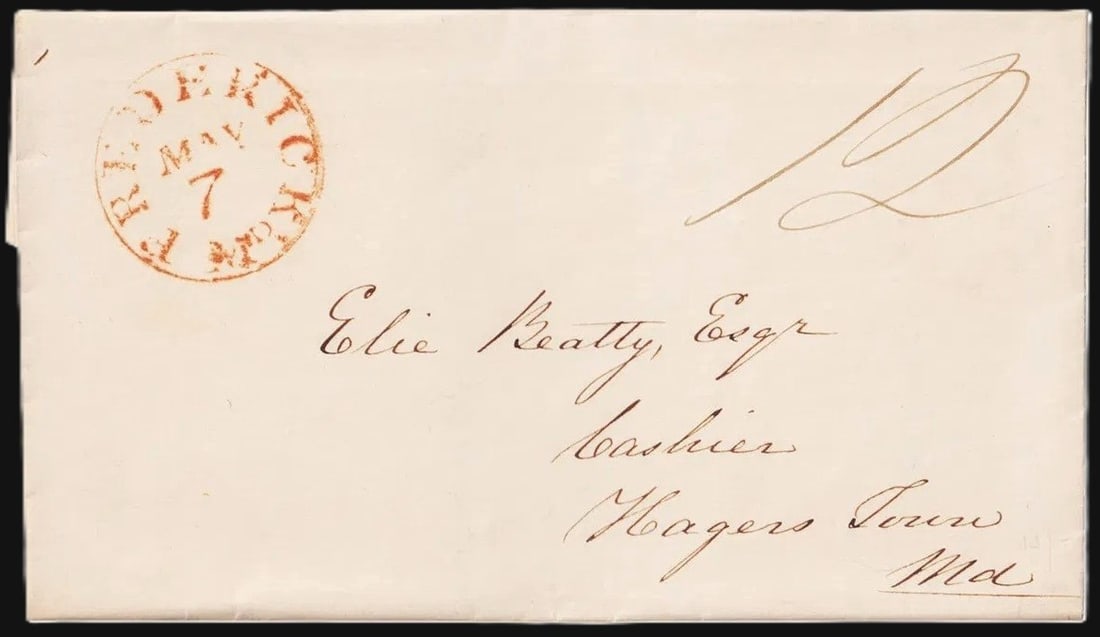 FREDERICK Md
MAY
7
12
Elie Beatty, Esqr
Cashier
Hagers Town
Md